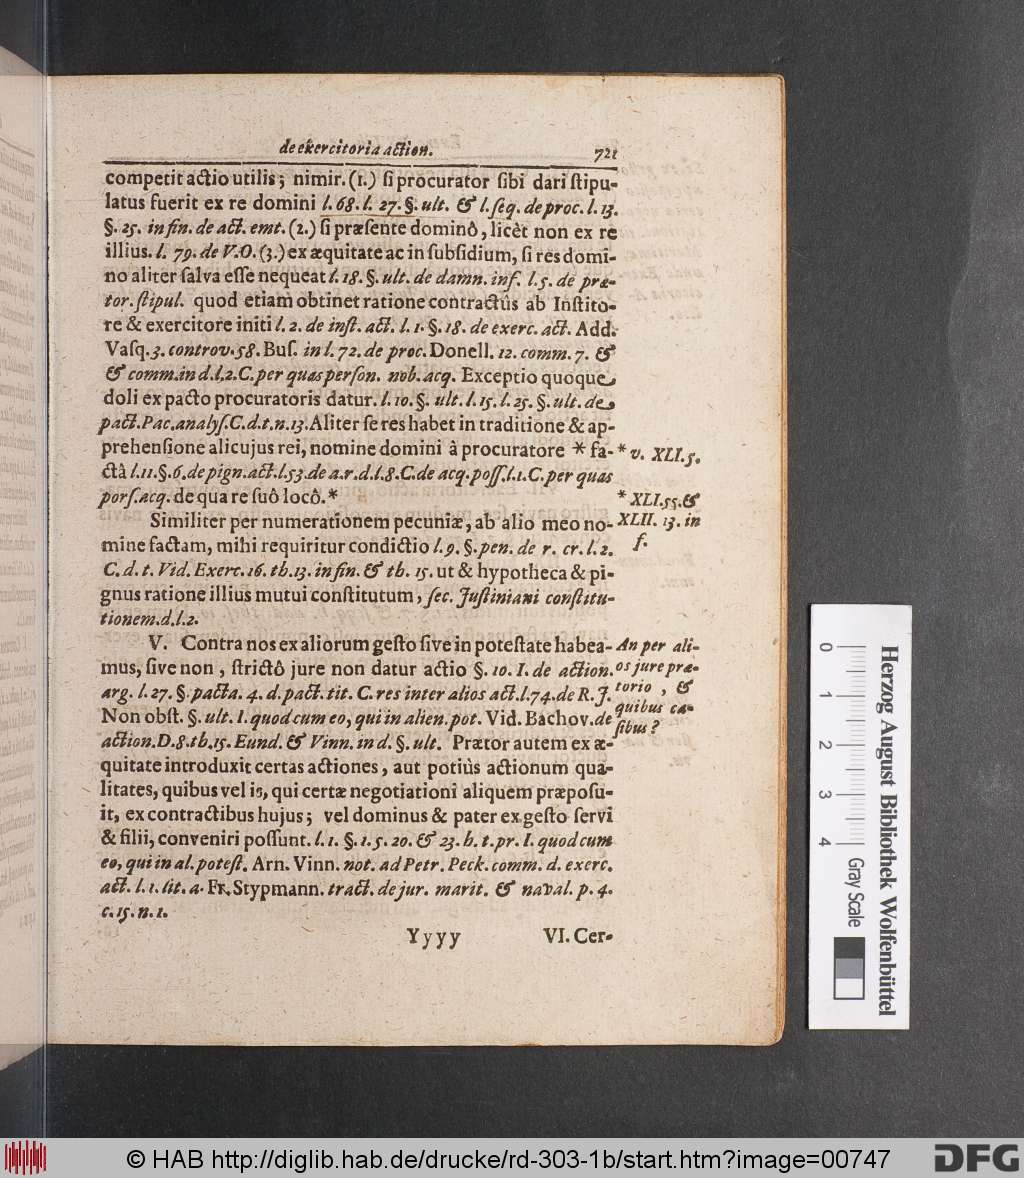 de exercitoria action. 721
competit actio utilis; nimir. (1.) ſi procurator ſibi dari ſtipu-
latus fuerit ex re domini l. 68. l. 27. §. ult. & l. ſeq. de proc. l. 13.
§. 25. in fin. de act. emt. (2.) ſi præſente dominô, licèt non ex re
illius. l. 79. de V.O. (3.) ex æquitate ac in ſubſidium, ſi res domi-
no aliter ſalva eſſe nequeat l. 18. §. ult. de damn. inf. l. 5. de præ-
tor. ſtipul. quod etiam obtinet ratione contractûs ab Inſtito-
re & exercitore initi l. 2. de inſt. act. l. 1. §. 18. de exerc. act. Add.
Vaſq. 3. controv. 58. Buſ. in l. 72. de proc. Donell. 12. comm. 7. &
& comm. in d. l. 2. C. per quas perſon. nob. acq. Exceptio quoque
doli ex pacto procuratoris datur. l. 10. §. ult. l. 15. l. 25. §. ult. de
pact. Pac. analyſ. C. d. t. n. 13. Aliter ſe res habet in traditione & ap-
prehenſione alicujus rei, nomine domini â procuratore * fa-
ctâ l. 11. §. 6. de pign. act. l. 53. de a. r. d. l. 8. C. de acq. poſſ. l. 1. C. per quas
porſ. acq. de qua re ſuô locô. *
* v. XLI. 5.
* XLI. 55. &
XLII. 13. in
f.
Similiter per numerationem pecuniæ, ab alio meo no-
mine factam, mihi requiritur condictio l. 9. §. pen. de r. cr. l. 2.
C. d. t. Vid. Exerc. 16. th. 13. in fin. & th. 15. ut & hypotheca & pi-
gnus ratione illius mutui conſtitutum, ſec. Juſtiniani conſtitu-
tionem. d. l. 2.
V. Contra nos ex aliorum geſto ſive in poteſtate habea-
mus, ſive non, ſtrictô jure non datur actio §. 10. I. de action.
arg. l. 27. §. pacta. 4. d. pact. tit. C. res inter alios act. l. 74. de R. J.
Non obſt. §. ult. I. quod cum eo, qui in alien. pot. Vid. Bachov. de
action. D. 8. th. 15. Eund. & Vinn. in d. §. ult. Prætor autem ex æ-
quitate introduxit certas actiones, aut potiùs actionum qua-
litates, quibus vel is, qui certæ negotiationi aliquem præpoſu-
it, ex contractibus hujus; vel dominus & pater ex geſto ſervi
& filii, conveniri poſſunt. l. 1. §. 1. 5. 20. & 23. h. t. pr. I. quod cum
eo, qui in al. poteſt. Arn. Vinn. not. ad Petr. Peck. comm. d. exerc.
act. l. 1. lit. a. Fr. Stypmann. tract. de jur. marit. & naval. p. 4.
c. 15. n. 1.
An per ali-
os jure præ-
torio, &
quibus ca-
ſibus?
Yyyy VI. Cer-
0 1 2 3 4
Herzog August Bibliothek Wolfenbüttel
Gray Scale
© HAB http://diglib.hab.de/drucke/rd-303-1b/start.htm?image=00747
DFG